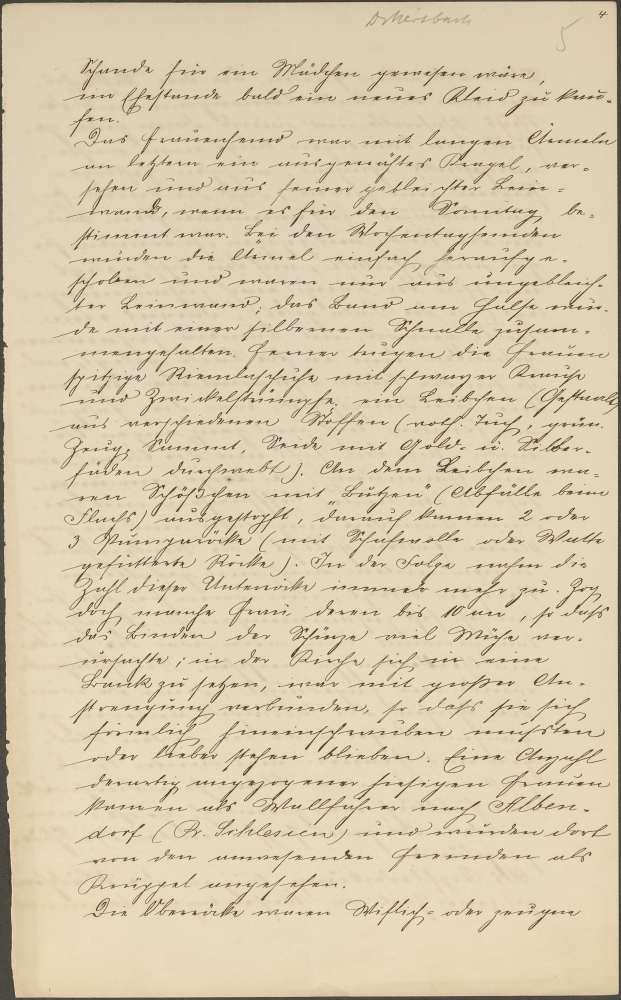 4
5
Schande für ein Mädchen gewesen wäre,
im Ehestande bald ein neues Kleid zu kau-
fen.
Das Frauenhemd war mit langen Ärmeln
an letztern ein ausgenähtes Preasel, ver-
sehen und aus feiner gebleichter Lein-
wand, wenn es für den Sonntag be-
stimmt war. Bei den Wochentaghemden
wurden die Ärmel einfach heraufge-
schoben und waren nur aus ungebleich-
ter Leinwand; das Band am Halse wur-
de mit einer silbernen Schnalle zusam-
mengehalten. Ferner trugen die Frauen
spitzige Riemlaschuhe mit schwarzer Krause
und Zwickelstrümpfe, ein Leibchen (Gestaltl)
aus verschiedenen Stoffen (roth. Tuch, grün.
Zeug, Sammt, Seide mit Gold- u. Silber-
fäden durchwebt). An dem Leibchen wa-
ren Schößchen mit „Butzen" (Abfälle beim
Flachs) ausgestopft, darauf kamen 2 oder
3 (mit Schafwolle oder Watte
gefütterte Röcke). In der Folge nahm die
Zahl dieser Unterröcke immer mehr zu. Zog
doch manche Frau deren bis 10 an, so daß
das Binden der Schürze viel Mühe ver-
ursachte; in der Kirche sich in eine
Bank zu setzen, war mit großer An-
strengung verbunden, so daß sie sich
förmlich hineinschrauben mußten
oder lieber stehen blieben. Eine Anzahl
derartig angezogener hiesigen Frauen
kamen als Wallfahrer nach Alben-
dorf (Pr. Schlesien) und wurden dort
von den anwesenden Fremden als
Krüppel angesehen.
Die Oberröcke waren Wiflich- oder zeugne